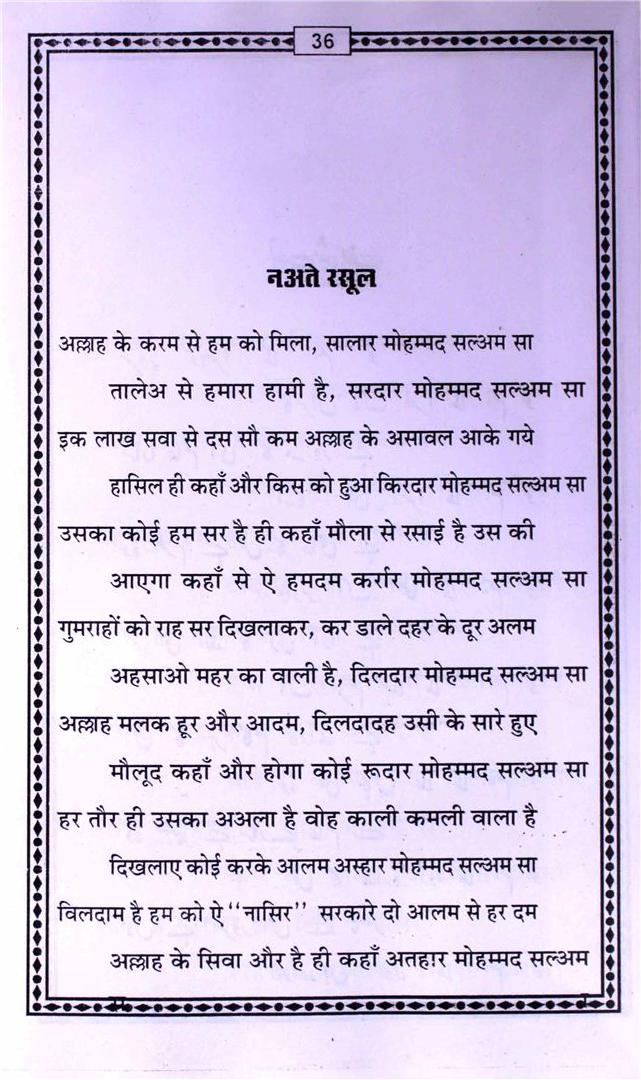 36
नअते रसूल
अल्लाह के करम से हम को मिला, सालार मोहम्मद सल्अम सा
तालेअ से हमारा हामी है, सरदार मोहम्मद सल्अम सा
इक लाख सवा से दस सौ कम अल्लाह के असावल आके गये
हासिल ही कहाँ और किस को हुआ किरदार मोहम्मद सल्अम सा
उसका कोई हम सर है ही कहाँ मौला से रसाई है उस की
आएगा कहाँ से ऐ हमदम कर्रार मोहम्मद सल्अम सा
गुमराहों को राह सर दिखलाकर, कर डाले दहर के दूर अलम
अहसाओ महर का वाली है, दिलदार मोहम्मद सल्अम सा
अल्लाह मलक हूर और आदम, दिलदादह उसी के सारे हुए
मौलूद कहाँ और होगा कोई रूदार मोहम्मद सल्अम सा
हर तौर ही उसका अअला है वोह काली कमली वाला है
दिखलाए कोई करके आलम अस्हार मोहम्मद सल्अम सा
विलदाम है हम को ऐ “नासिर” सरकारे दो आलम से हर दम
अल्लाह के सिवा और है ही कहाँ अतहार मोहम्मद सल्अम